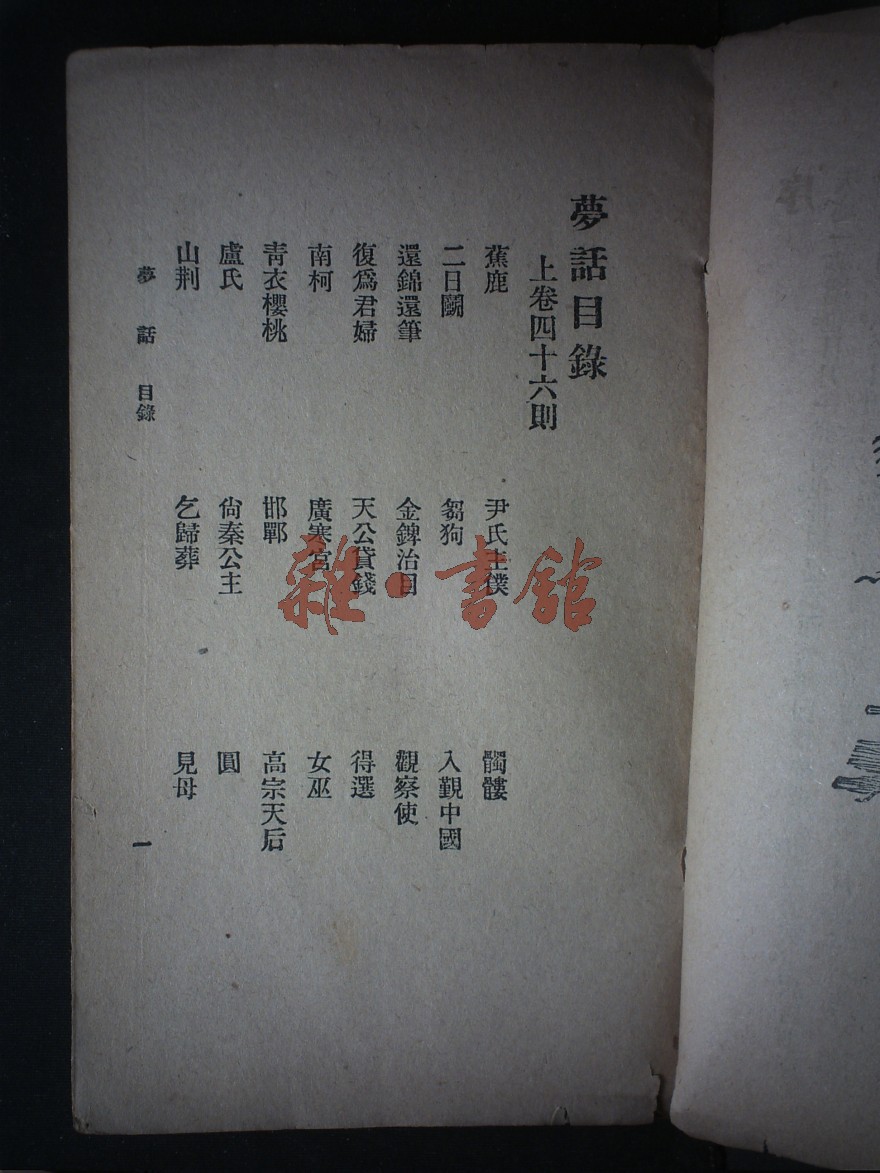 夢話目錄
上卷四十六則
蕉鹿 尹氏主僕 髑髏
二日鬭 芻狗 入覲中國
還錦還筆 金錍治目 觀察使
復爲君婦 天公貸錢 得選
南柯 廣寒宮 女巫
青衣櫻桃 邯鄲 高宗天后
盧氏 尙秦公主 圓
山荆 乞歸葬 見母
夢話 目錄 一
雜·書館
序